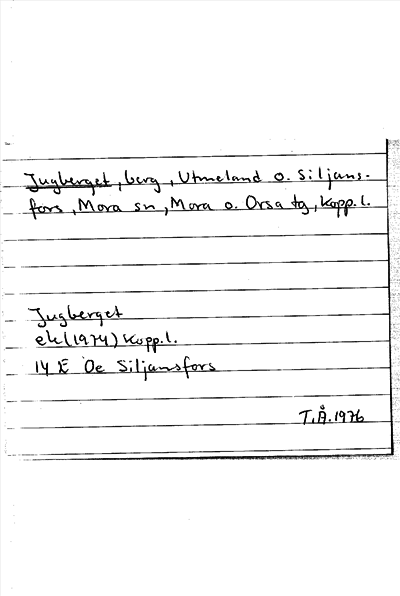 Jugberget, berg, Utmeland o. Siljans-
fors, Mora sn, Mora o. Orsa tg, Kopp.l.
Jugberget
ek (1974) Kopp.l.
14 E 0e Siljansfors
T.Å. 1976